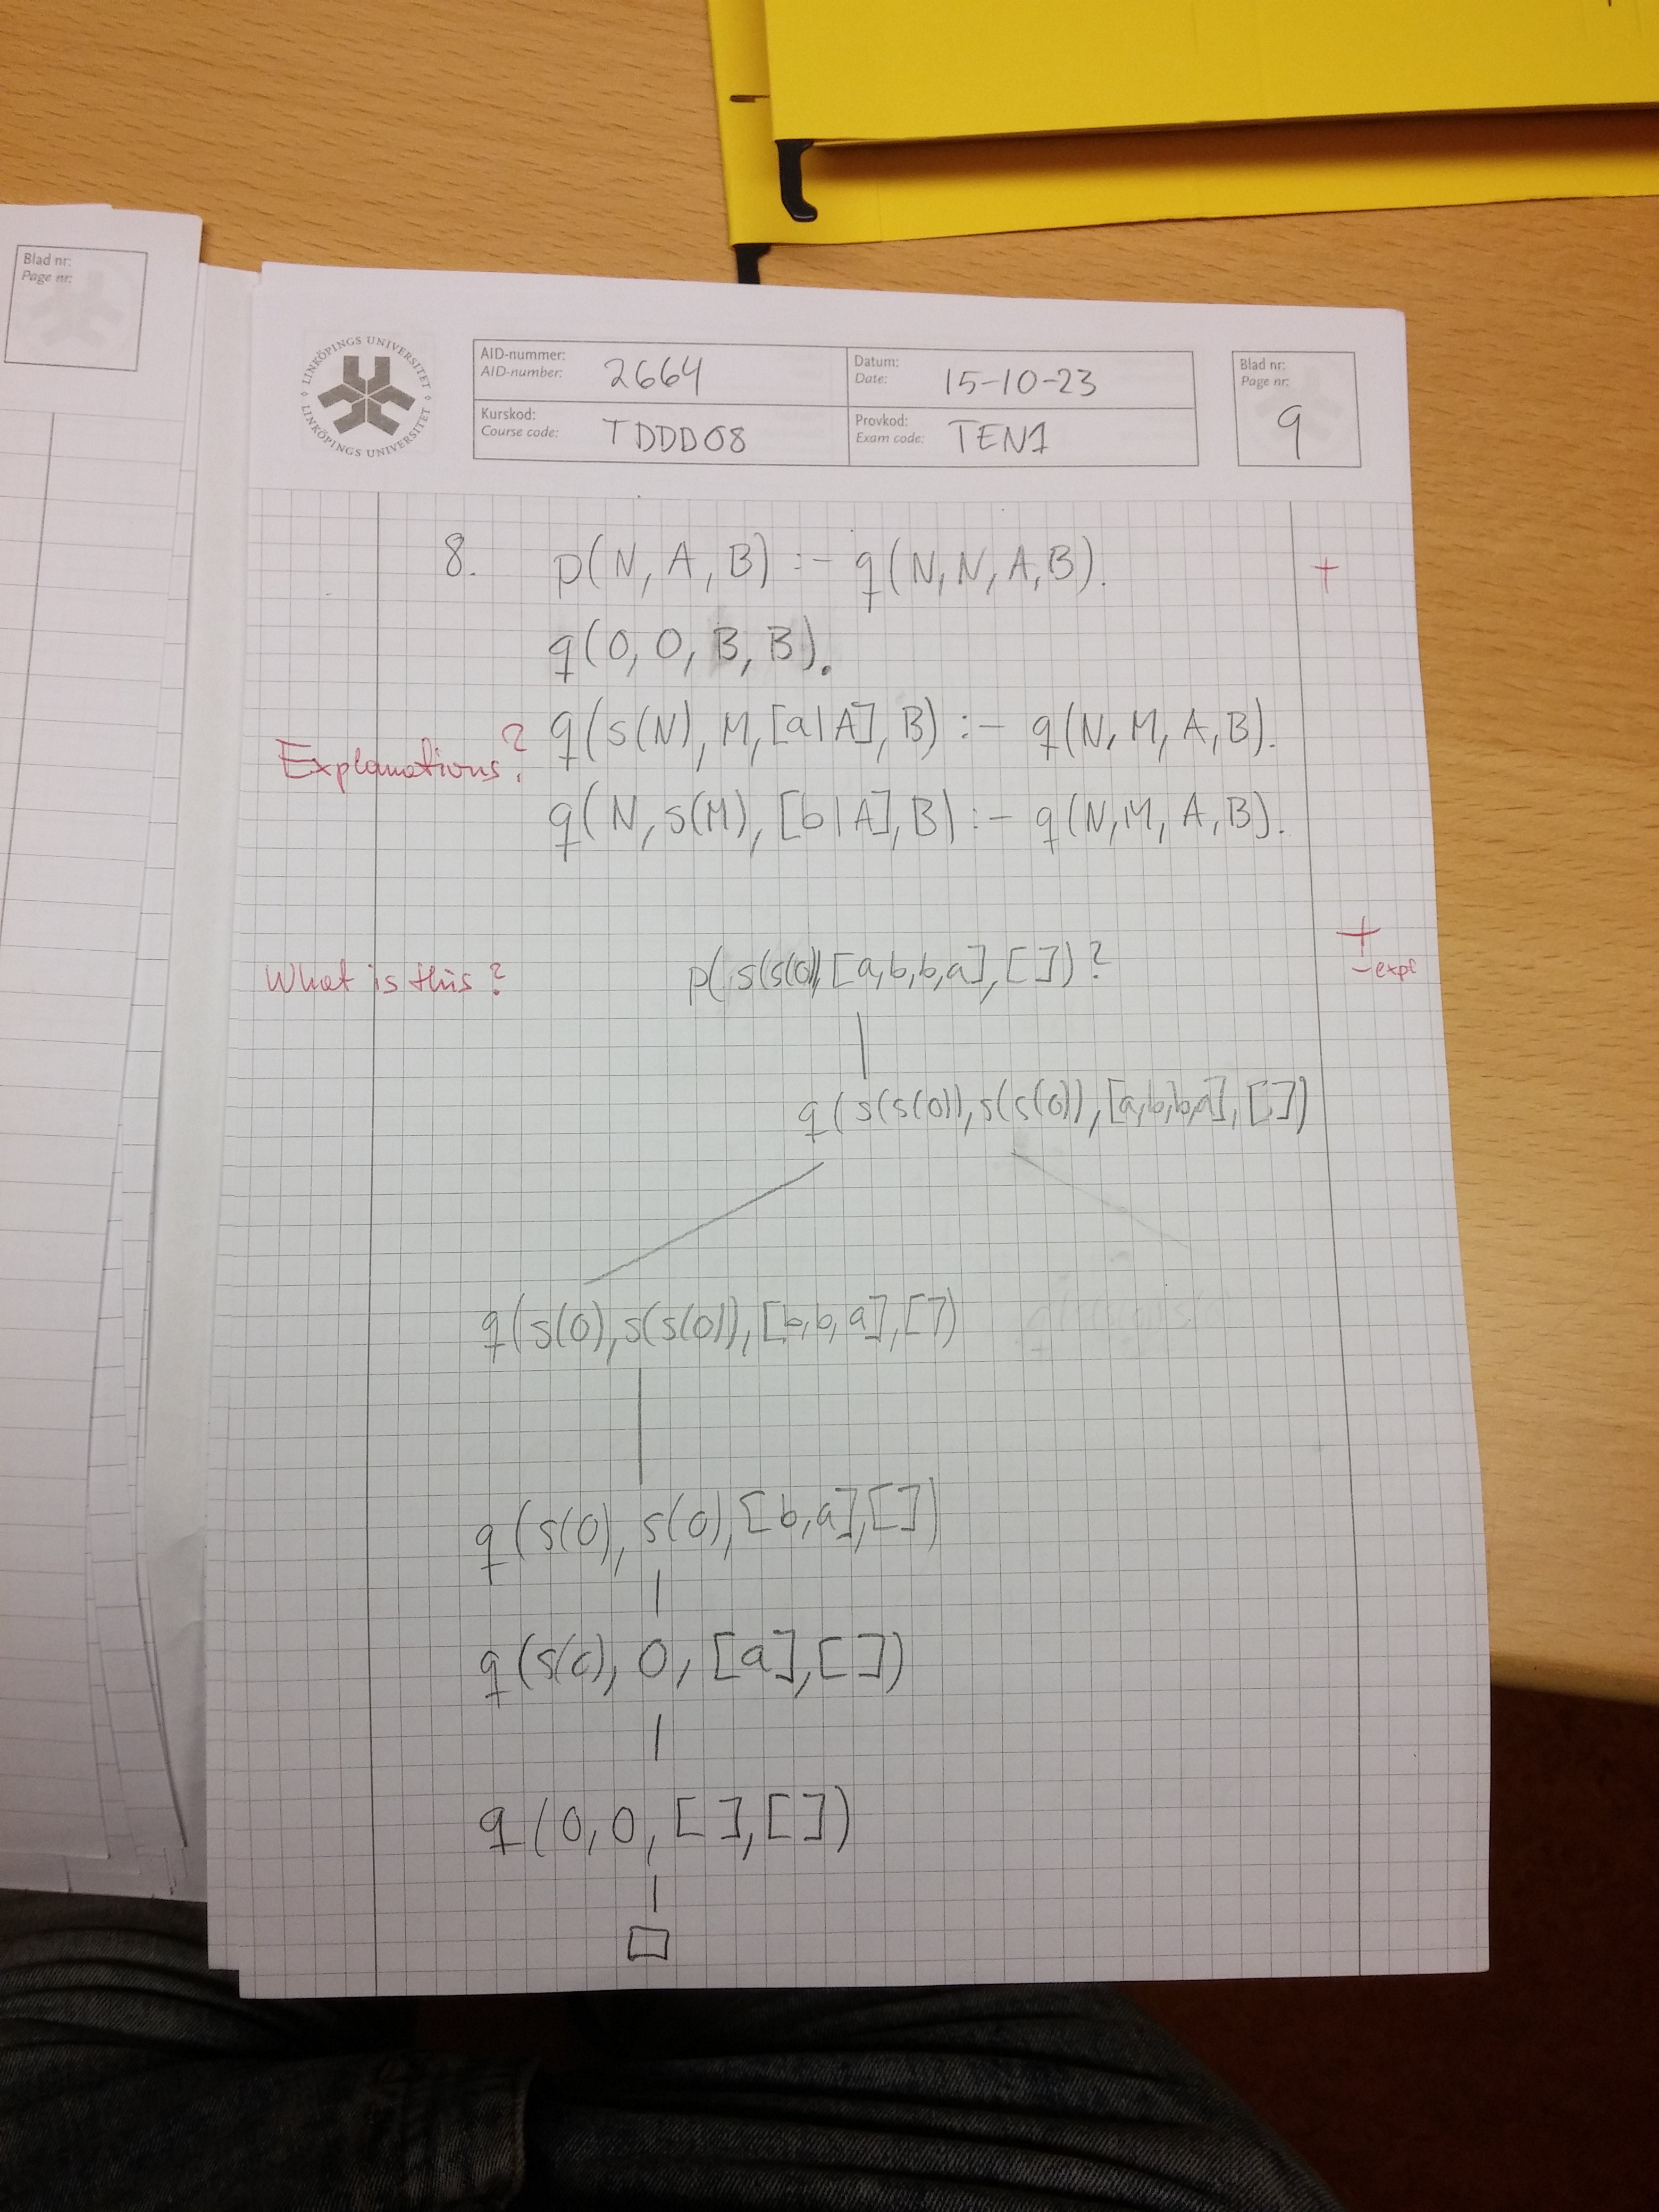 Blad nr:
Page nr:
LINKÖPINGS UNIVERSITET
LINKÖPINGS UNIVERSITET
AID-nummer:
AID-number: 2664
Datum:
Date: 15-10-23
Blad nr:
Page nr:
9
Kurskod:
Course code: TDDD08
Provkod:
Exam code: TEN1
8. p(N, A, B) :- q(N, N, A, B). +
q(0, 0, B, B).
q(s(N), M, [a|A], B) :- q(N, M, A, B).
Explanations?
q(N, s(M), [b|A], B) :- q(N, M, A, B).
What is this? p(s(s(0)), [a, b, b, a], [])? +
- expl
q(s(s(0)), s(s(0)), [a, b, b, a], [])
q(s(0), s(s(0)), [b, b, a], [])
q(s(0), s(0), [b, a], [])
q(s(0), 0, [a], [])
q(0, 0, [], [])